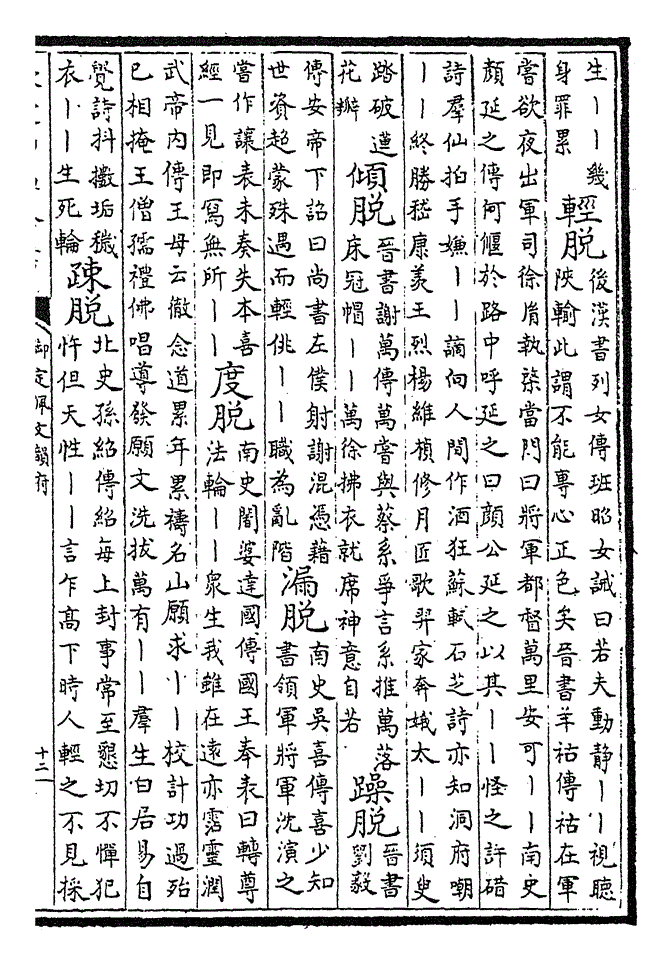 生丨丨幾
身罪累
輕脫
後漢書列女傳班昭女誡曰若夫動静丨丨視聽
陜輸此謂不能專心正色矣晉書羊祜傳祜在軍
嘗欲夜出軍司徐胤執棨當門曰將軍都督萬里安可丨丨南史
顔延之傳何偃於路中呼延之曰顔公延之以其丨丨怪之許碏
詩羣仙拍手嫌丨丨謫向人間作酒狂蘇軾石芝詩亦知洞府嘲
丨丨終勝嵇康羨王烈楊維楨修月匠歌羿家奔娥太丨丨須臾
踏破蓮
花瓣
傾脫
晉書謝萬傳萬嘗與蔡系爭言系推萬落
床冠帽丨丨萬徐拂衣就席神意自若
躁脫
晉書
劉毅
傳安帝下詔曰尚書左僕射謝混憑藉
世資超蒙殊遇而輕佻丨丨職為亂階
漏脫
南史吳喜傳喜少知
書領軍將軍沈演之
嘗作讓表未奏失本喜
經一見即寫無所丨丨
度脫
南史闍婆達國傳國王奉表曰轉尊
法輪丨丨衆生我雖在遠亦霑靈潤
武帝内傳王母云徹念道累年累禱名山願求丨丨校計功過殆
已相掩王僧孺禮佛唱導發願文洗拔萬有丨丨羣生白居易自
覺詩抖擻垢穢
衣丨丨生死輪
疎脫
北史孫紹傳紹每上封事常至懇切不憚犯
忤但天性丨丨言乍高下時人輕之不見採
御定佩文韻府
十二